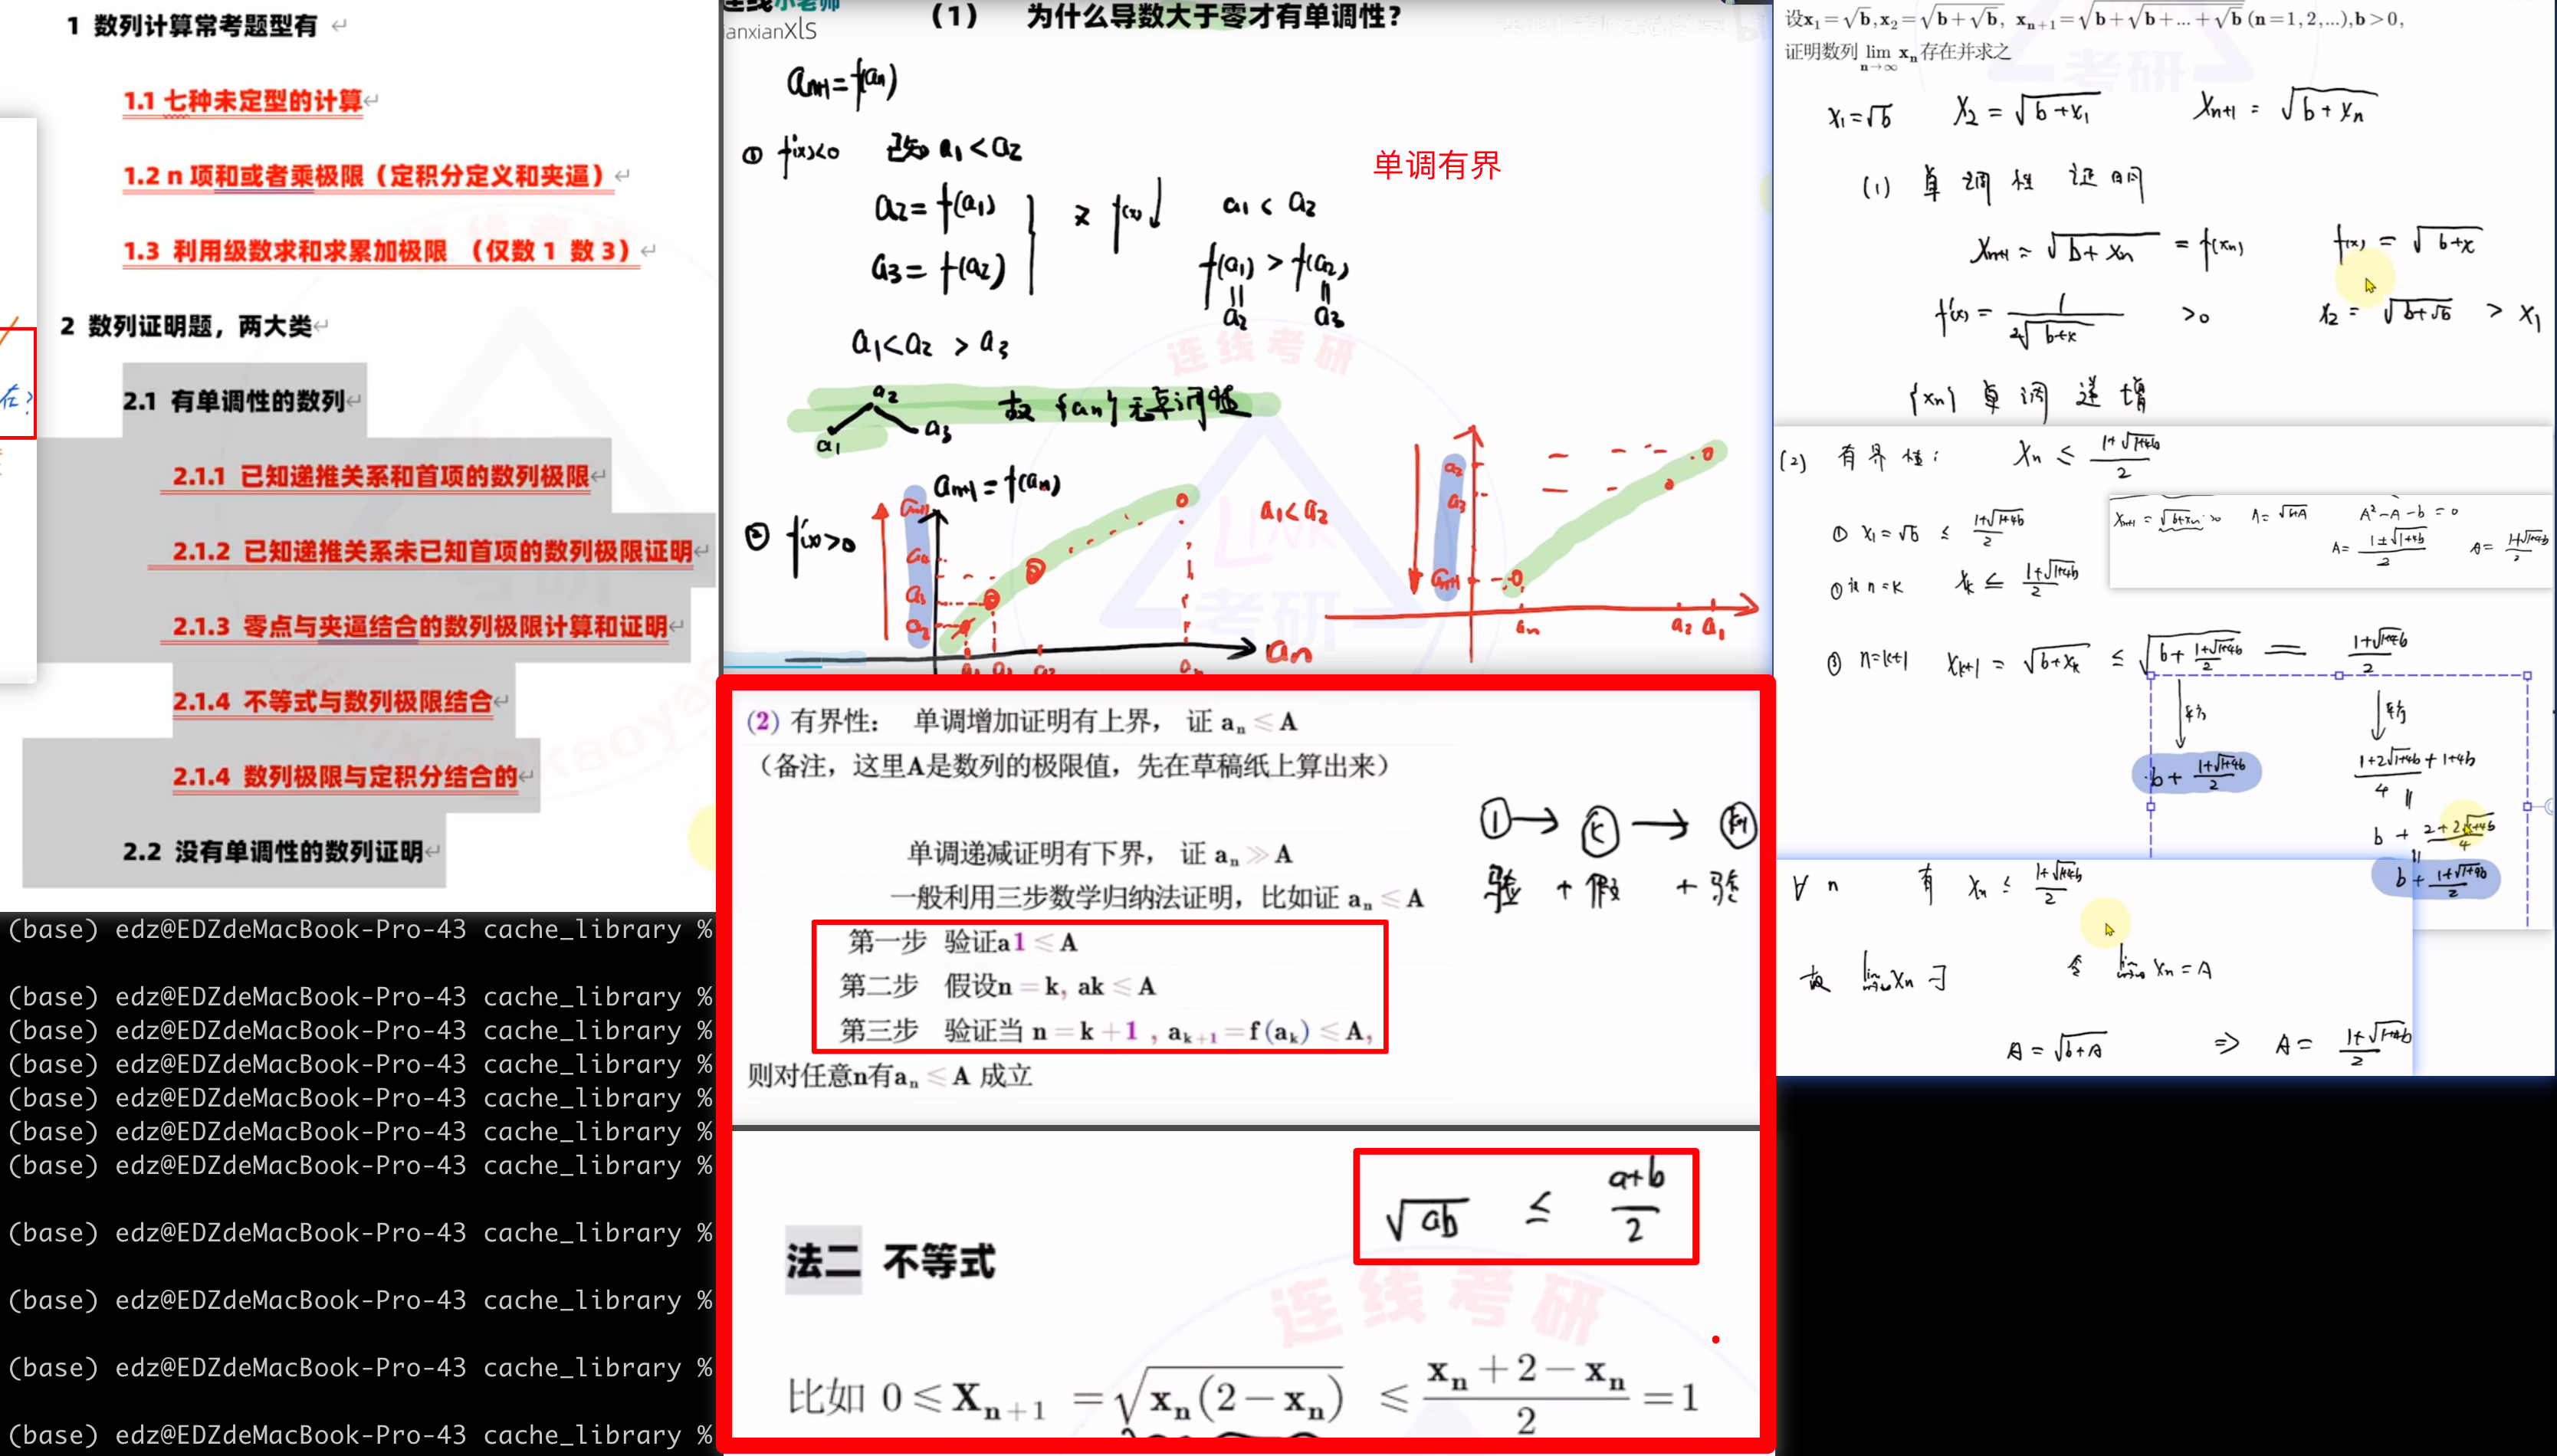 1 数列计算常考题型有
1.1 七种未定型的计算
1.2 n 项和或者乘极限（定积分定义和夹逼）
1.3 利用级数求和求累加极限 （仅数 1 数 3）
2 数列证明题，两大类
在?
2.1 有单调性的数列
2.1.1 已知递推关系和首项的数列极限
2.1.2 已知递推关系未已知首项的数列极限证明
2.1.3 零点与夹逼结合的数列极限计算和证明
2.1.4 不等式与数列极限结合
2.1.4 数列极限与定积分结合的
2.2 没有单调性的数列证明
(base) edz@EDZdeMacBook-Pro-43 cache_library %
(base) edz@EDZdeMacBook-Pro-43 cache_library %
(base) edz@EDZdeMacBook-Pro-43 cache_library %
(base) edz@EDZdeMacBook-Pro-43 cache_library %
(base) edz@EDZdeMacBook-Pro-43 cache_library %
(base) edz@EDZdeMacBook-Pro-43 cache_library %
(base) edz@EDZdeMacBook-Pro-43 cache_library %
(base) edz@EDZdeMacBook-Pro-43 cache_library %
(base) edz@EDZdeMacBook-Pro-43 cache_library %
(base) edz@EDZdeMacBook-Pro-43 cache_library %
(base) edz@EDZdeMacBook-Pro-43 cache_library %
连线小老师
anxianXlS
（1） 为什么导数大于零才有单调性？
aₙ₊₁=f(aₙ)
① f'(x)<0 已知 a₁<a₂
单调有界
a₂=f(a₁)
a₃=f(a₂)
又 f(x)↓
a₁<a₂
f(a₁)>f(a₂)
a₂ a₃
a₁<a₂>a₃
a₁ a₂ a₃
故{aₙ}无单调性
② f'(x)>0
aₙ₊₁=f(aₙ)
aₙ₊₁
a₄
a₃
a₂
aₙ
a₁<a₂
a₂
a₃
aₙ₊₁
aₙ a₂ a₁
连线考研
LINK
考研
(2) 有界性： 单调增加证明有上界， 证 aₙ ≤ A
（备注，这里A是数列的极限值，先在草稿纸上算出来）
单调递减证明有下界， 证 aₙ ≫ A
一般利用三步数学归纳法证明，比如证 aₙ ≤ A
第一步 验证a1 ≤ A
第二步 假设n = k, ak ≤ A
第三步 验证当 n = k + 1 , aₖ₊₁ = f (aₖ) ≤ A,
则对任意n有aₙ ≤ A 成立
① → Ⓚ → (k+1)
验 + 假 + 验
√ab ≤ (a+b)/2
法二 不等式
连线考研
比如 0 ≤ Xₙ₊₁ = √(xₙ(2 − xₙ)) ≤ (xₙ + 2 − xₙ)/2 = 1
设x₁=√b, x₂=√(b+√b), xₙ₊₁=√(b+√(b+...+√b)) (n=1,2,...), b>0,
证明数列 lim xₙ 存在并求之
n→∞
x₁=√b x₂=√(b+x₁) xₙ₊₁=√(b+xₙ)
(1) 单调性证明
xₙ₊₁=√(b+xₙ)=f(xₙ) f(x)=√(b+x)
f'(x)=1/(2√(b+x)) >0 x₂=√(b+√b) > x₁
{xₙ}单调递增
(2) 有界性： xₙ ≤ (1+√(1+4b))/2
xₙ₊₁=√(b+xₙ)>0 A=√(b+A) A²-A-b=0
A=(1±√(1+4b))/2 A=(1+√(1+4b))/2
① x₁=√b ≤ (1+√(1+4b))/2
① 设 n=k xₖ ≤ (1+√(1+4b))/2
③ n=k+1 xₖ₊₁=√(b+xₖ) ≤ √(b+(1+√(1+4b))/2) = (1+√(1+4b))/2
平方 平方
b+(1+√(1+4b))/2
(1+2√(1+4b)+1+4b)/4
b+(2+2√(1+4b))/4
b+(1+√(1+4b))/2
∀ n 有 xₙ ≤ (1+√(1+4b))/2
故 lim xₙ ∃ 令 lim xₙ=A
A=√(b+A) ⇒ A=(1+√(1+4b))/2